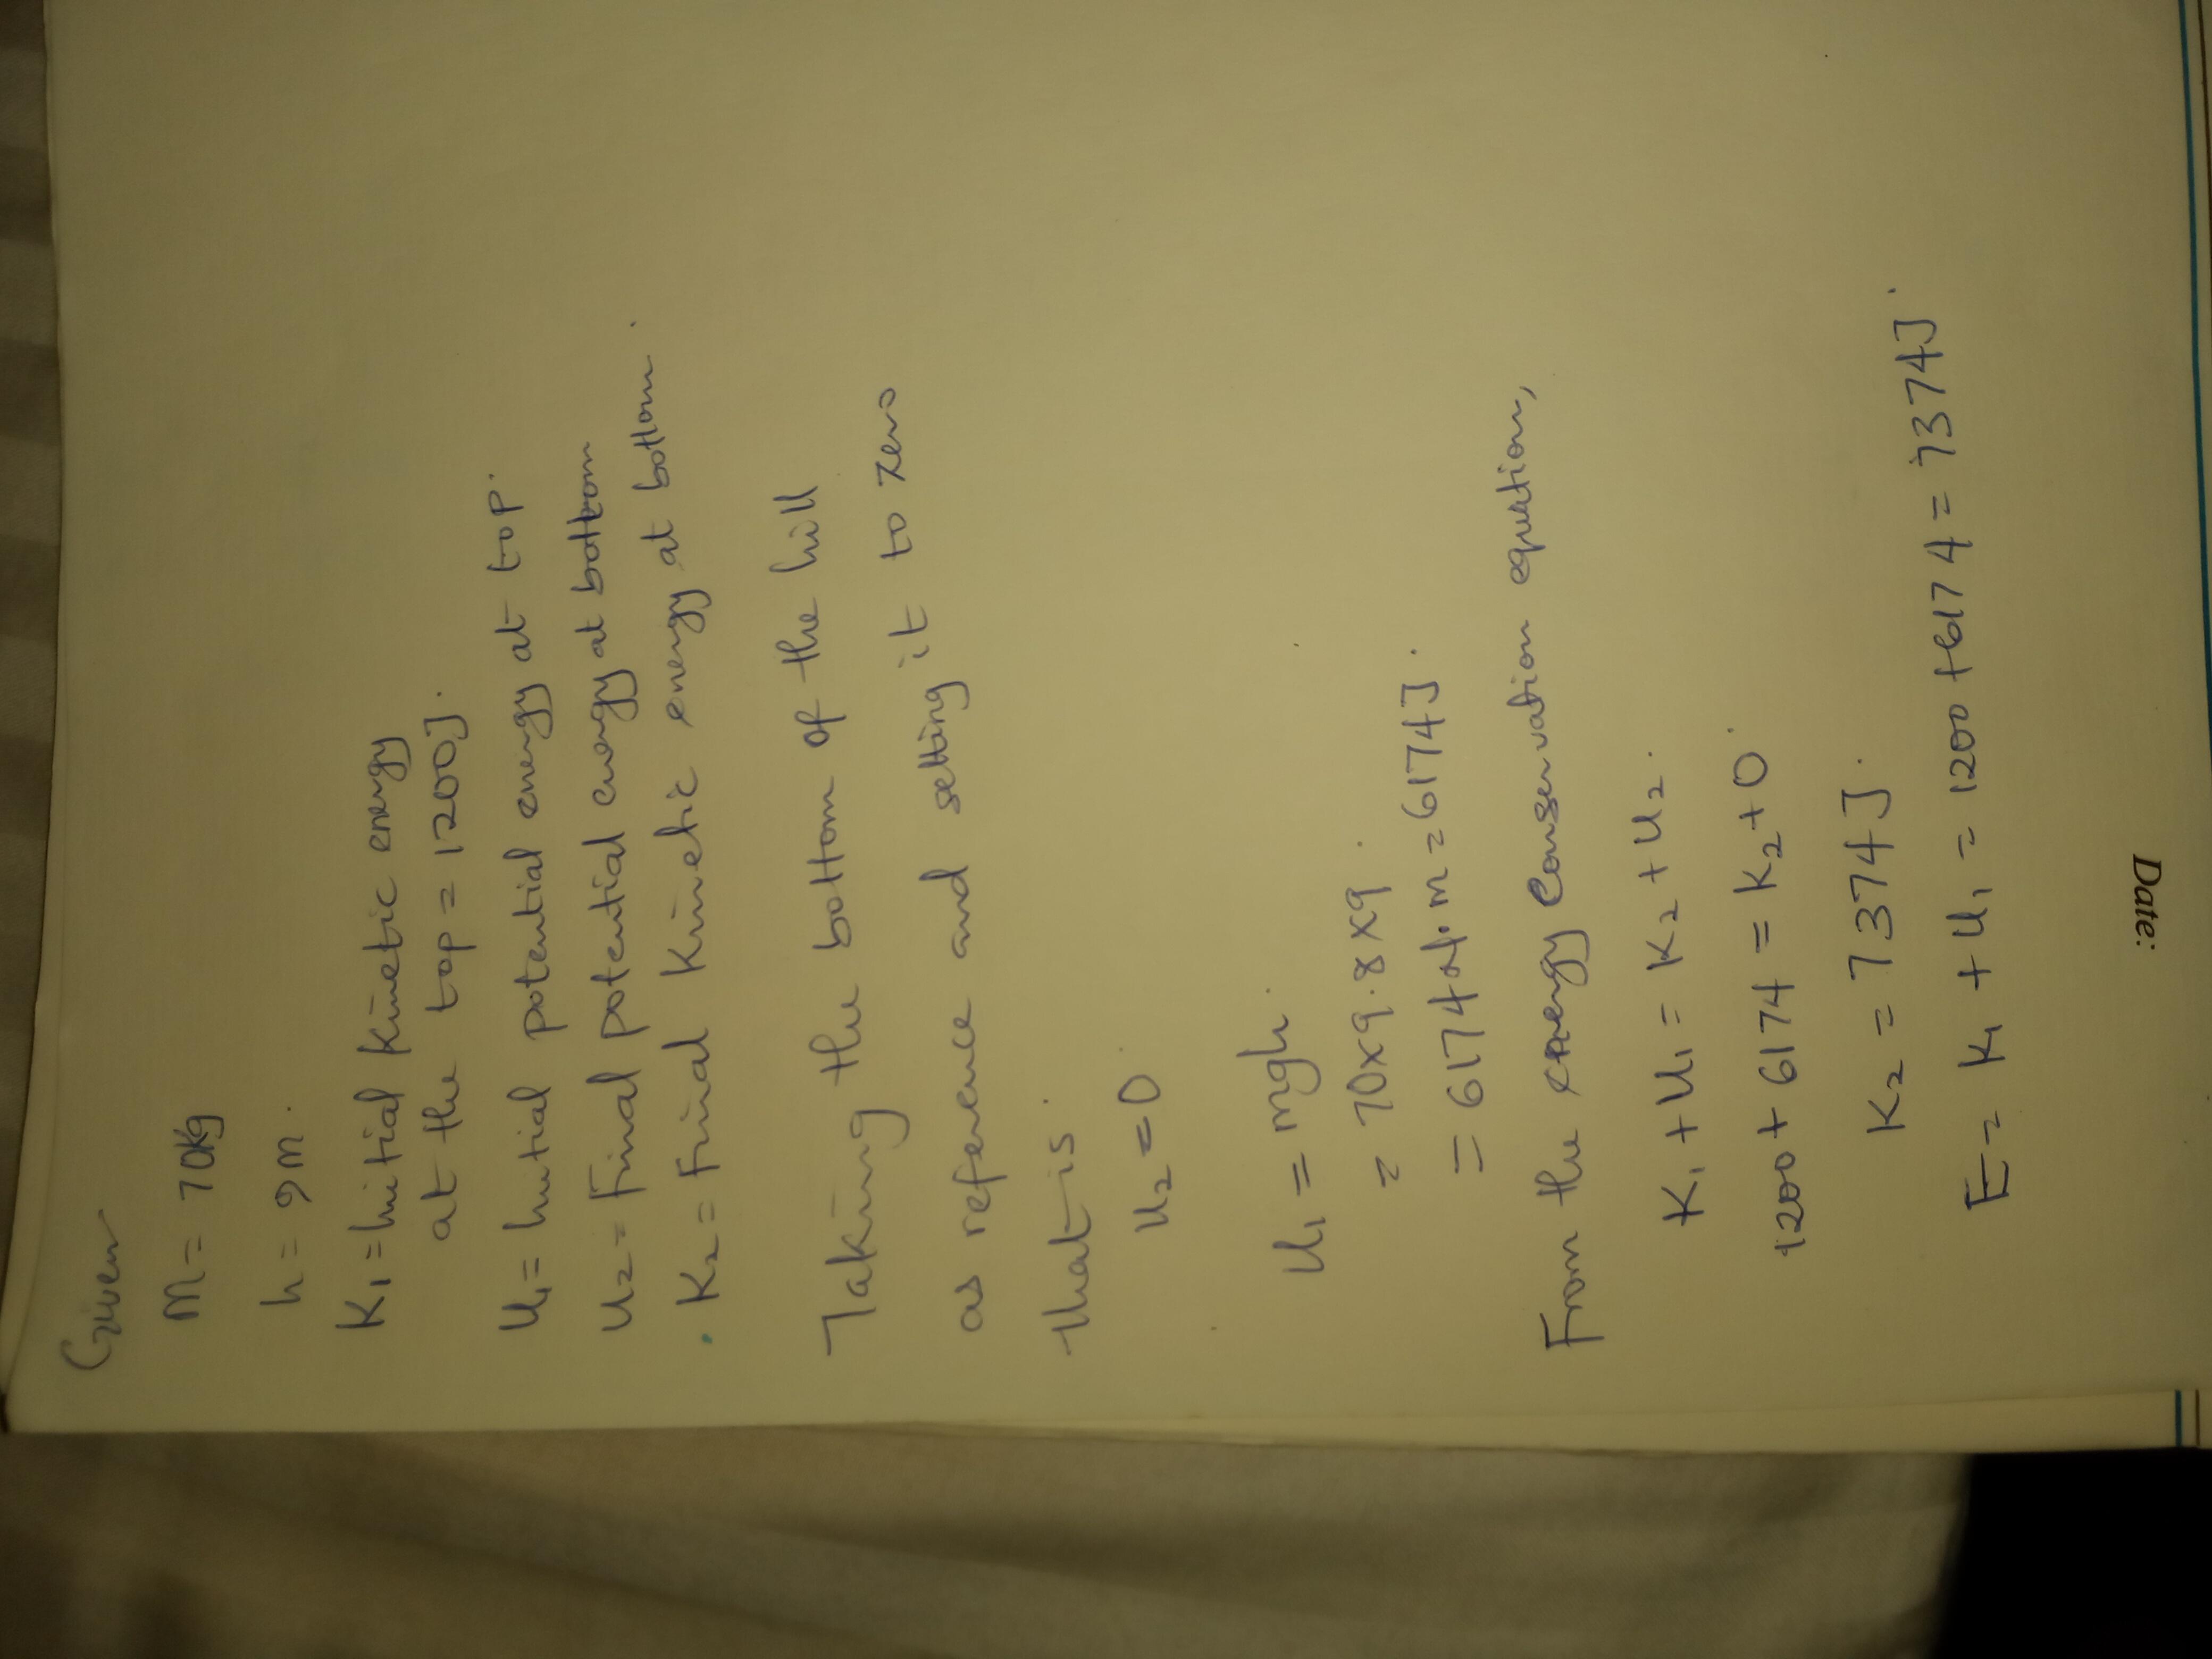 Given
m = 70kg
h = 9 m.
K₁ = Initial kinetic energy
at the top = 1200J.
U₁ = Initial potential energy at top.
U₂ = Final potential energy at bottom
K₂ = Final kinetic energy at bottom.
Taking the bottom of the hill
as reference and setting it to zero
that is.
U₂ = 0
U₁ = mgh.
= 70x9.8x9
= 6174 N.m = 6174J.
From the energy conservation equation,
K₁ + U₁ = K₂ + U₂.
1200 + 6174 = K₂ + 0.
K₂ = 7374J.
E = K₁ + U₁ = 1200 + 6174 = 7374J.
Date: